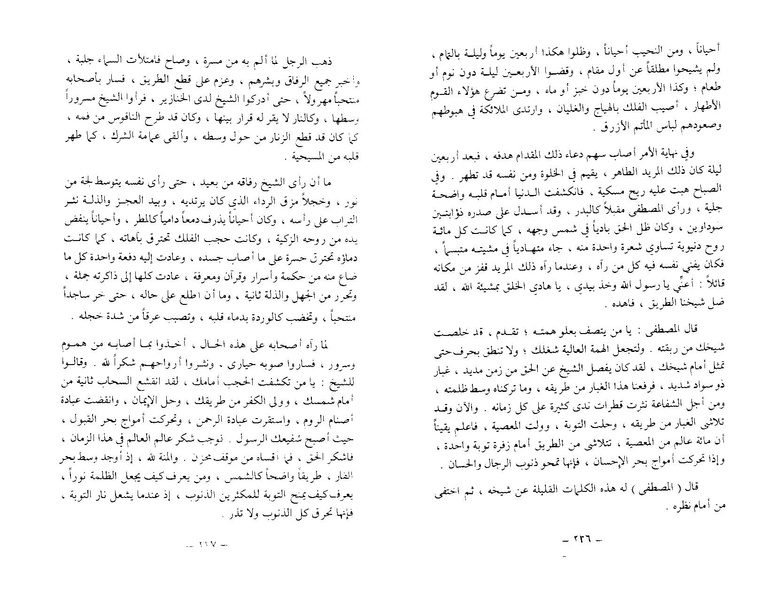 أحياناً ، ومن النحيب أحياناً ، وظلوا هكذا أربعين يوماً وليلة بالتمام ،
ولم يشيحوا مطلقاً عن أول مقام ، وقضوا الأربعين ليلة دون نوم أو
طعام ؛ وكذا الأربعين يوماً دون خبز أو ماء ، ومن تضرع هؤلاء القوم
الأطهار ، أصيب الفلك بالهياج والغليان ، وارتدى الملائكة في هبوطهم
وصعودهم لباس المأتم الأزرق .
وفي نهاية الأمر أصاب سهم دعاء ذلك المقدام هدفه ، فبعد أربعين
ليلة كان ذلك المريد الطاهر ، يقيم في الخلوة ومن نفسه قد تطهر . وفي
الصباح هبت عليه ريح مسكية ، فانكشفت الدنيا أمام قلبه واضحة
جلية ، ورأى المصطفى مقبلاً كالبدر ، وقد أسدل على صدره ذؤابتين
سوداوين ، وكان ظل الحق بادياً في شمس وجهه ، كما كانت كل مائة
روح دنيوية تساوي شعرة واحدة منه ، جاء متهادياً في مشيته متبسماً ،
فكان يفنى نفسه فيه كل من رآه ، وعندما رآه ذلك المريد قفز من مكانه
قائلاً : أعنّي يا رسول الله وخذ بيدي ، يا هادي الخلق بمشيئة الله ، لقد
ضل شيخنا الطريق ، فاهده .
قال المصطفى : يا من يتصف بعلو همته ؛ تقدم ، قد خلصت
شيخك من ربقته . ولتجعل الهمة العالية شغلك ؛ ولا تنطق بحرف حتى
تمثل أمام شيخك ، لقد كان يفصل الشيخ عن الحق من زمن مديد ، غبار
ذو سواد شديد ، فرفعنا هذا الغبار من طريقه ، وما تركناه وسط ظلمته ،
ومن أجل الشفاعة نثرت قطرات ندى كثيرة على كل زمانه . والآن وقد
تلاشى الغبار من طريقه ، وحلت التوبة ، وولت المعصية ، فاعلم يقيناً
أن مائة عالم من المعصية ، تتلاشى من الطريق أمام زفرة توبة واحدة ،
وإذا تحركت أمواج بحر الإحسان ، فإنها تمحو ذنوب الرجال والحسان .
قال ( المصطفى ) له هذه الكلمات القليلة عن شيخه ، ثم اختفى
من أمام نظره .
– ٢٣٦ –
ذهب الرجل لما ألم به من مسرة ، وصاح فامتلأت السماء جلبة ،
وأخبر جميع الرفاق وبشرهم ، وعزم على قطع الطريق ، فسار بأصحابه
منتحباً مهرولاً ، حتى أدركوا الشيخ لدى الخنازير ، فرأوا الشيخ مسروراً
وسطها ، وكالنار لا يقر له قرار بينها ، وكان قد طرح الناقوس من فمه ،
كما كان قد قطع الزنار من حول وسطه ، وألقى عمامة الشرك ، كما طهر
قلبه من المسيحية .
ما أن رأى الشيخ رفاقه من بعيد ، حتى رأى نفسه يتوسط لجة من
نور ، وخجلاً مزق الرداء الذي كان يرتديه ، وبيد العجز والذلة نثر
التراب على رأسه ، وكان أحياناً يذرف دمعاً دامياً كالمطر ، وأحياناً ينفض
يده من روحه الزكية ، وكانت حجب الفلك تحترق بآهاته ، كما كانت
دماؤه تحترق حسرة على ما أصاب جسده ، وعادت إليه دفعة واحدة كل ما
ضاع منه من حكمة وأسرار وقرآن ومعرفة ، عادت كلها إلى ذاكرته جملة ،
وتحرر من الجهل والذلة ثانية ، وما أن اطلع على حاله ، حتى خر ساجداً
منتحباً ، وتخضب كالوردة بدماء قلبه ، وتصبب عرقاً من شدة خجله .
لما رآه أصحابه على هذه الحال ، أخذوا بما أصابه من هموم
وسرور ، فساروا صوبه حيارى ، ونثروا أرواحهم شكراً لله . وقالوا
للشيخ : يا من تكشفت الحجب أمامك ، لقد انقشع السحاب ثانية من
أمام شمسك ، وولى الكفر من طريقك ، وحل الإيمان ، وانفضت عبادة
أصنام الروم ، واستقرت عبادة الرحمن ، وتحركت أمواج بحر القبول ،
حيث أصبح شفيعك الرسول . فوجب شكر عالم العالم في هذا الزمان ،
فاشكر الحق ، فما أقساه من موقف محزن . والمنة لله ، إذ أوجد وسط بحر
القار ، طريقاً واضحاً كالشمس ، ومن يعرف كيف يجعل الظلمة نوراً ،
يعرف كيف يمنح التوبة للمكثرين الذنوب ، إذ عندما يشعل نار التوبة ،
فإنها تحرق كل الذنوب ولا تذر .
– ٢٣٧ –